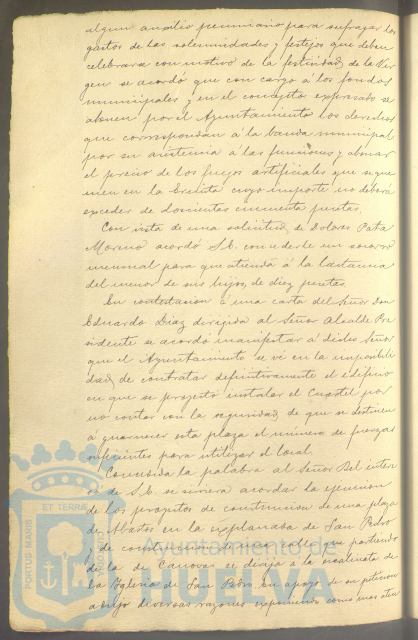 algun auxilio pecuniario para sufragar los
gastos de las solemnidades y festejos que deben
celebrarse con motivo de la festividad de la Vir
gen se acordó que con cargo á los fondos
municipales y en el concepto expresado se
abonen por el Ayuntamiento los derechos
que correspondan á la banda municipal
por su asistencia á las funciones y abonar
el precio de los fuegos artificiales que se que
men en la Ermita cuyo importe no deberá
exceder de doscientas cincuenta pesetas.
Con vista de una solicitud de Dolores Pata
Moreno acordó S.E. concederle un socorro
mensual para que atienda á la lactancia
del menor de sus hijos, de diez pesetas.
En contestacion á una carta del Señor Don
Eduardo Diaz dirigida al Señor Alcalde Pre
sidente se acordó manifestar á dicho Señor
que el Ayuntamiento se vé en la imposibili
dad de contratar definitivamente el edificio
en que se proyectó instalar el Cuartel por
no contar con la seguridad de que se destinen
á guarnecer esta plaza el número de fuerzas
suficientes para utilizar el local.
Concedida la palabra al Señor Bel intere
só de S.E. se sirviera acordar la ejecucion
de los proyectos de construccion de una plaza
de Abastos en la explanada de San Pedro
y de construccion de una calle que partiendo
de la de Canovas se dirija á la escalinata de
la Iglesia de San Pedro en apoyo de su peticion
adujo diversas razones exponiendo como mas aten
PORTUS MARIS
ET TERRÆ
Ayuntamiento de
HUELVA